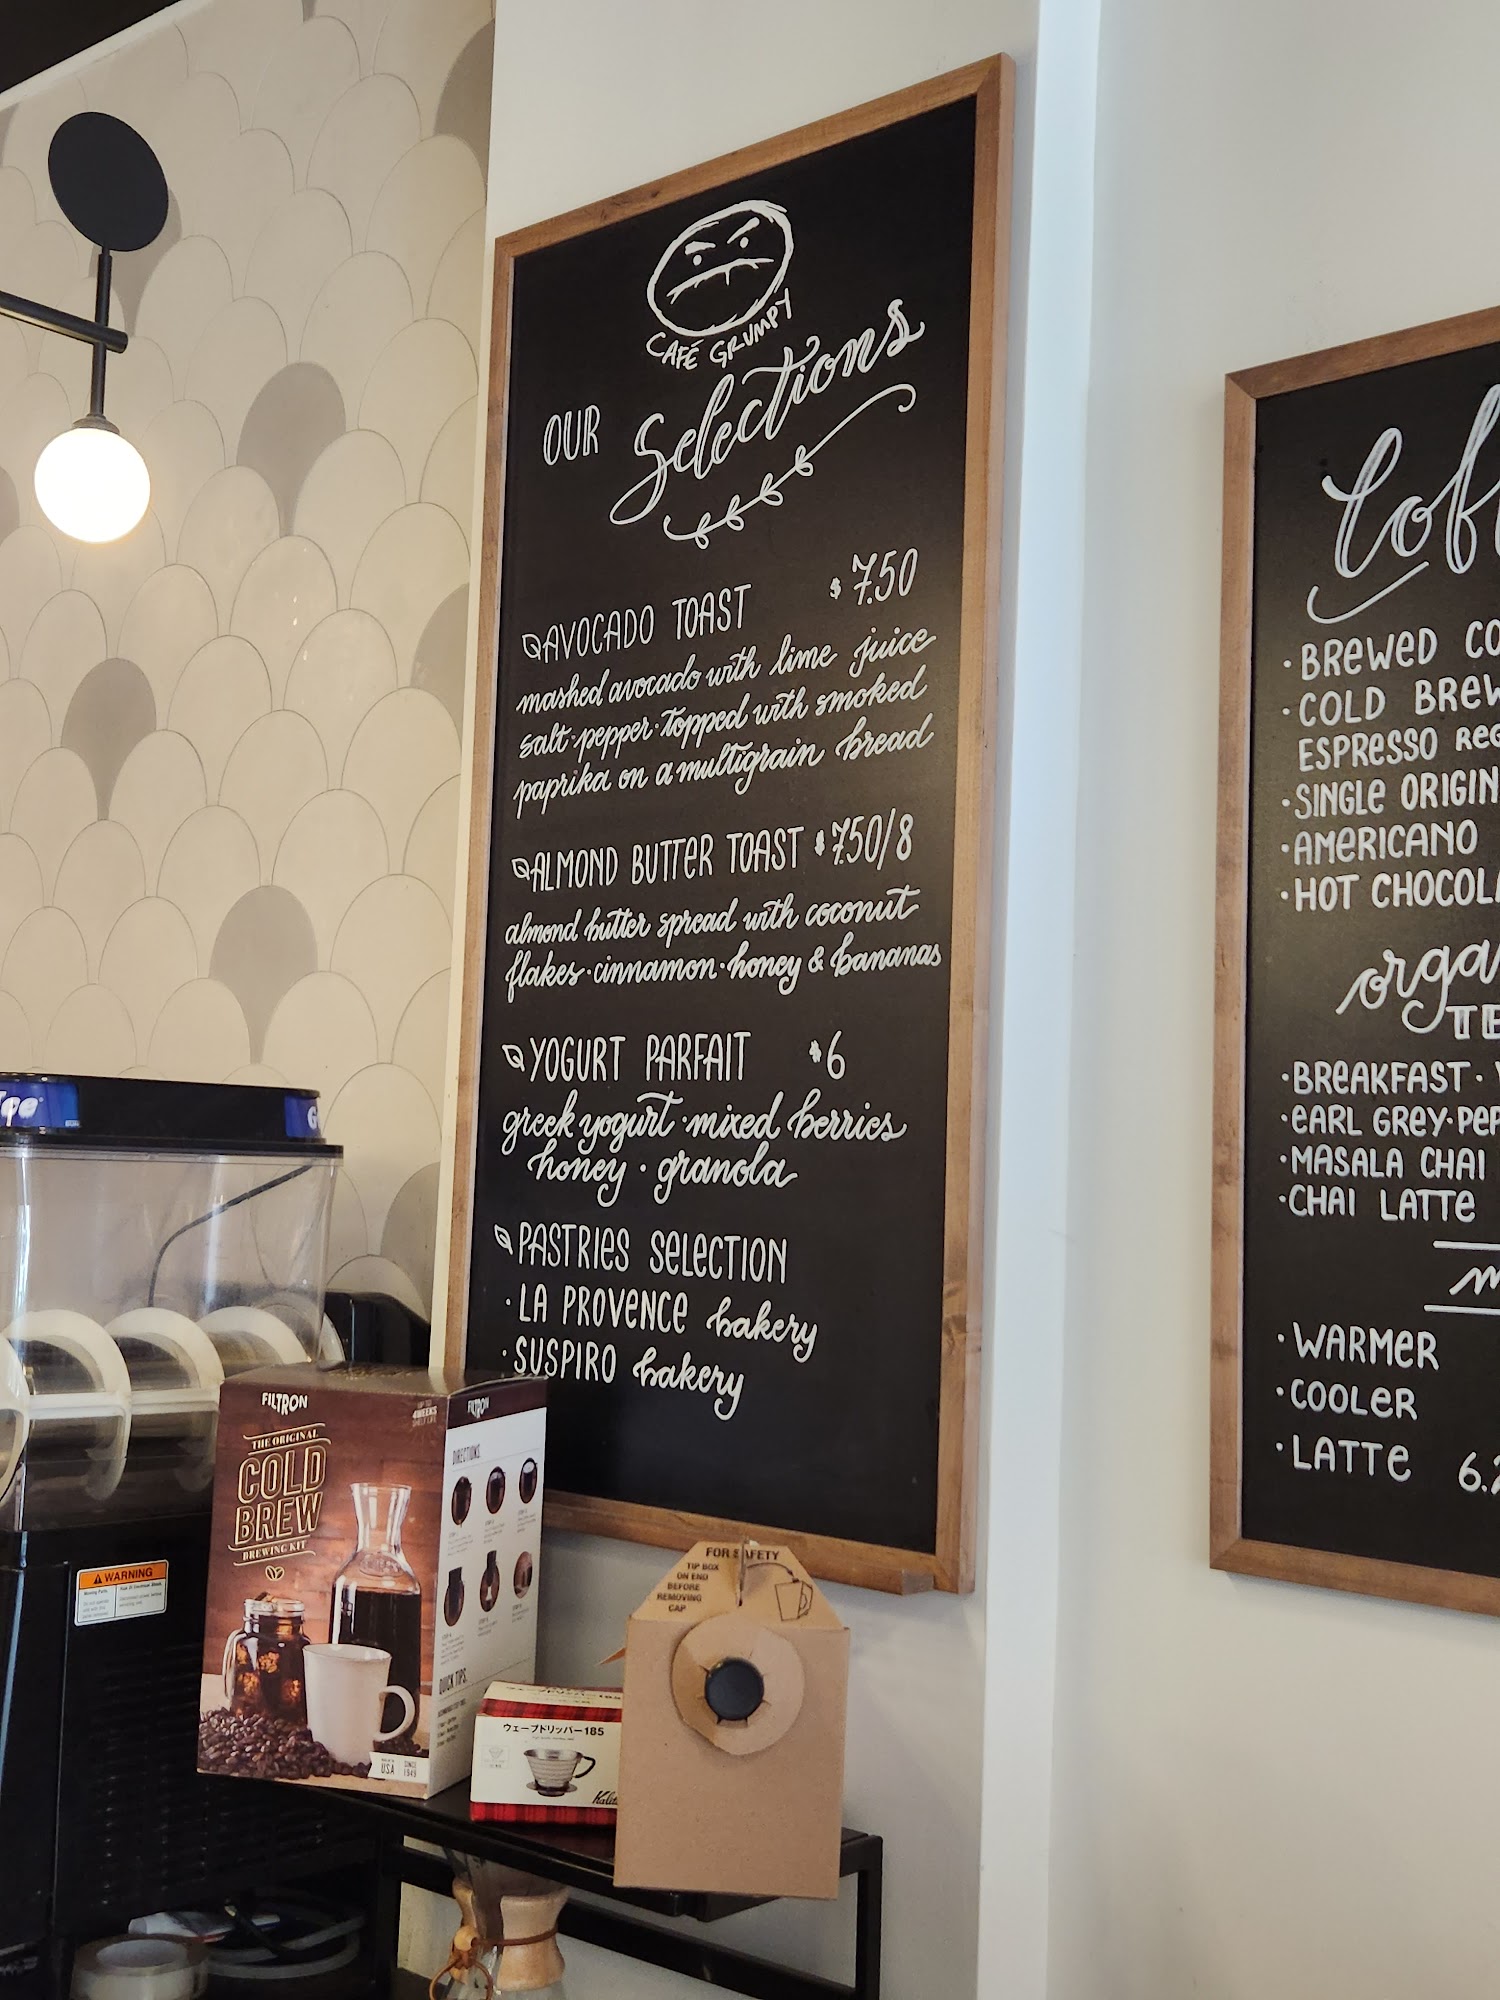 CAFÉ GRUMPY
OUR Selections
AVOCADO TOAST $7.50
mashed avocado with lime juice
salt · pepper · topped with smoked
paprika on a multigrain bread
ALMOND BUTTER TOAST $7.50/8
almond butter spread with coconut
flakes · cinnamon · honey & bananas
YOGURT PARFAIT $6
greek yogurt · mixed berries
honey · granola
PASTRIES SELECTION
· LA PROVENCE bakery
· SUSPIRO bakery
· BREWED
· COLD BREW
ESPRESSO
· SINGLE ORIGIN
· AMERICANO
· HOT
TE
· BREAKFAST ·
· EARL GREY ·
· MASALA CHAI
· CHAI LATTE
· WARMER
· COOLER
· LATTE
FILTRON
UP TO
4 WEEKS
SHELF LIFE
THE ORIGINAL
COLD
BREW
BREWING KIT
USA
SINCE
1949
FILTRON
DIRECTIONS
QUICK TIPS
WARNING
ウェーブドリッパー185
FOR SAFETY
TIP BOX
ON END
BEFORE
REMOVING
CAP